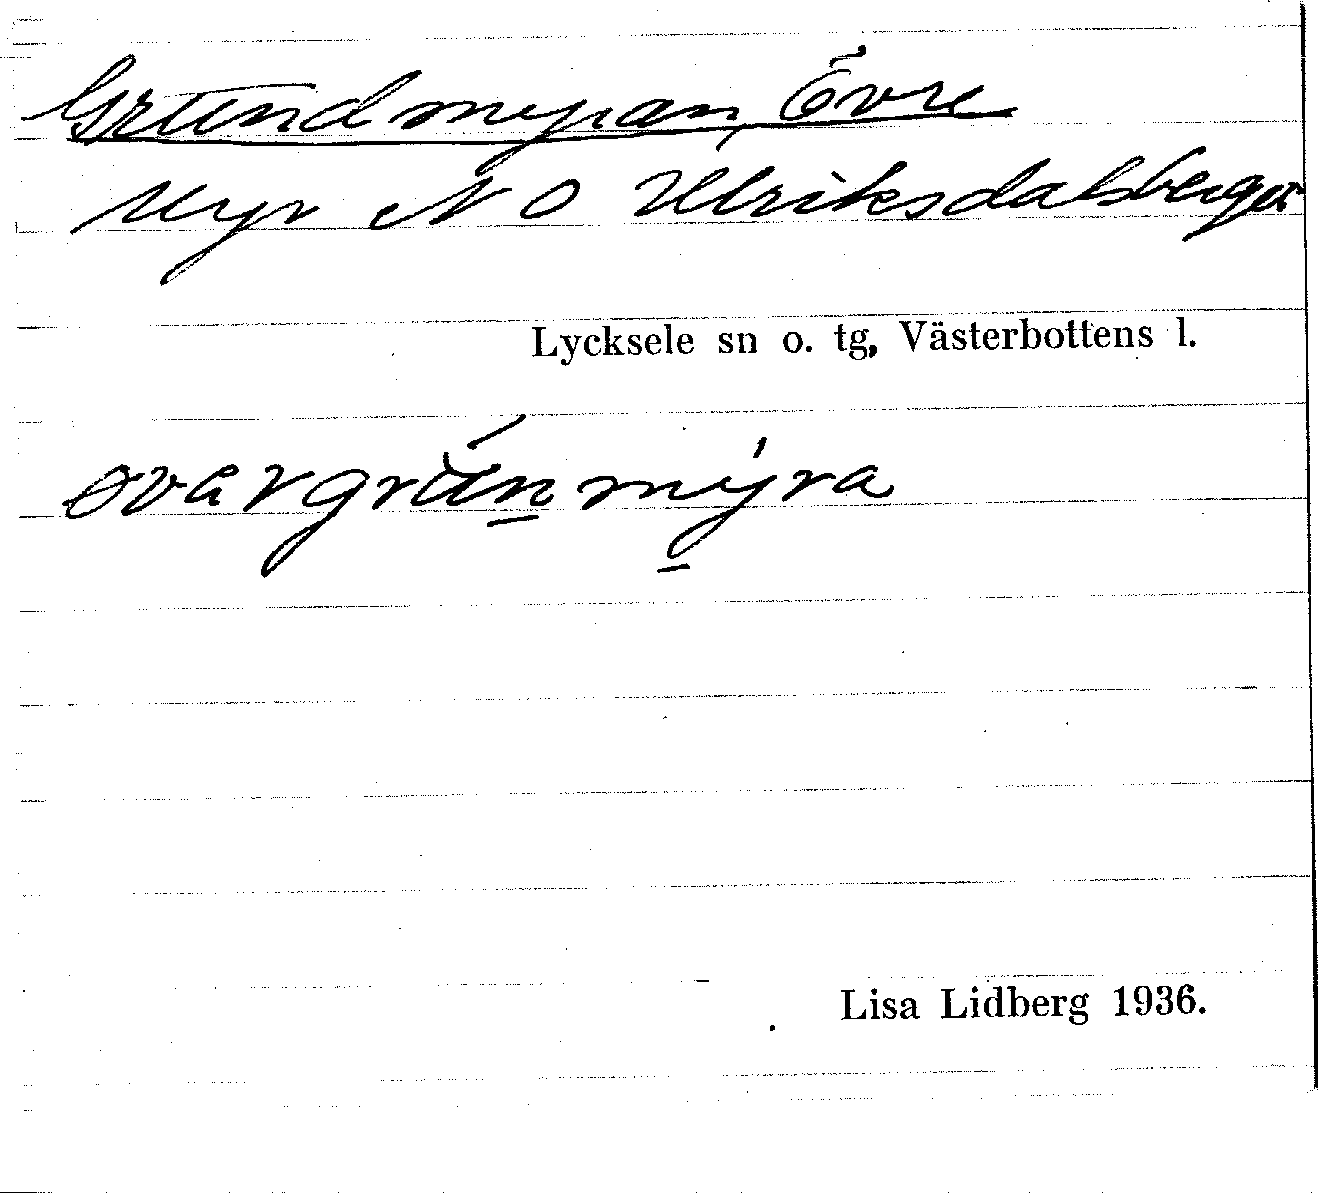 Grundmyran, Övre
Myr N O Ulriksdalsberget
Lycksele sn o. tg, Västerbottens l.
øvargrún̲mýra
Lisa Lidberg 1936.